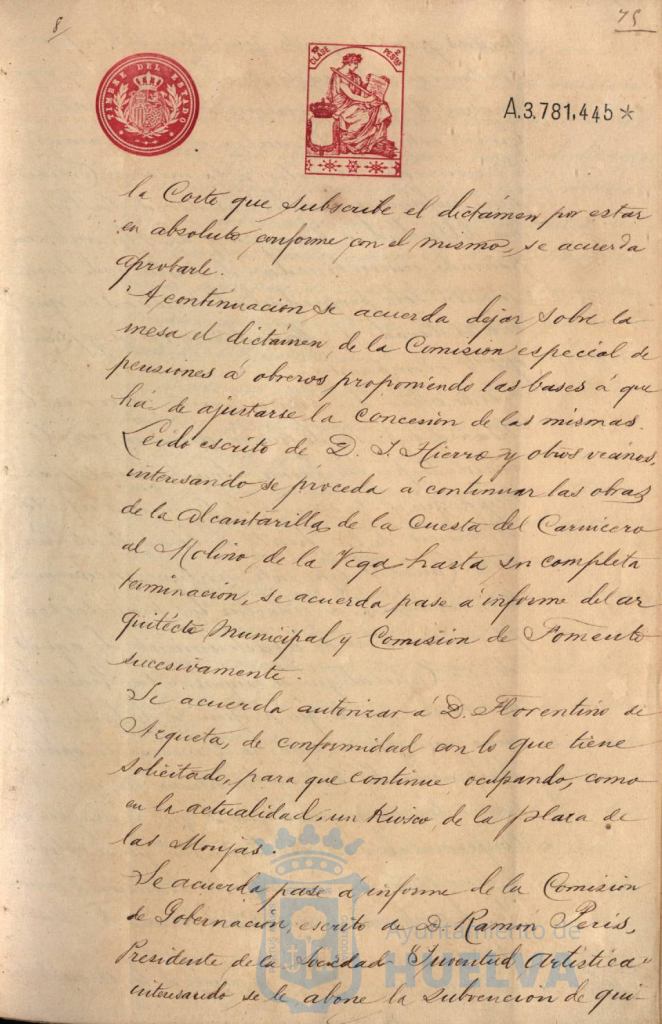 8
75
TIMBRE DEL ESTADO
CLASE
PESETAS
A.3.781,445*
la Corte que subscribe el dictámen por estar
en absoluto conforme con el mismo, se acuerda
aprobarle.
A continuación se acuerda dejar sobre la
mesa el dictámen de la Comision especial de
pensiones á obreros proponiendo las bases á que
há de ajustarse la concesión de las mismas.
Leido escrito de D. J. Hierro y otros vecinos,
interesando se proceda á continuar las obras
de la Alcantarilla de la Cuesta del Carnicero
al Molino de la Vega hasta su completa
terminación, se acuerda pase á informe del ar
quitécto Municipal y Comisión de Fomento
sucesivamente.
Se acuerda autorizar á D. Florentino de
Azqueta, de conformidad con lo que tiene
solicitado, para que continue ocupando, como
en la actualidad, un Kiosco de la plaza de
las Monjas.
Se acuerda pase á informe de la Comisión
de Gobernación, escrito de D. Ramon Peris,
Presidente de la Sociedad "Juventud Artistica"
interesando se le abone la subvención de qui-
Ayuntamiento de
HUELVA